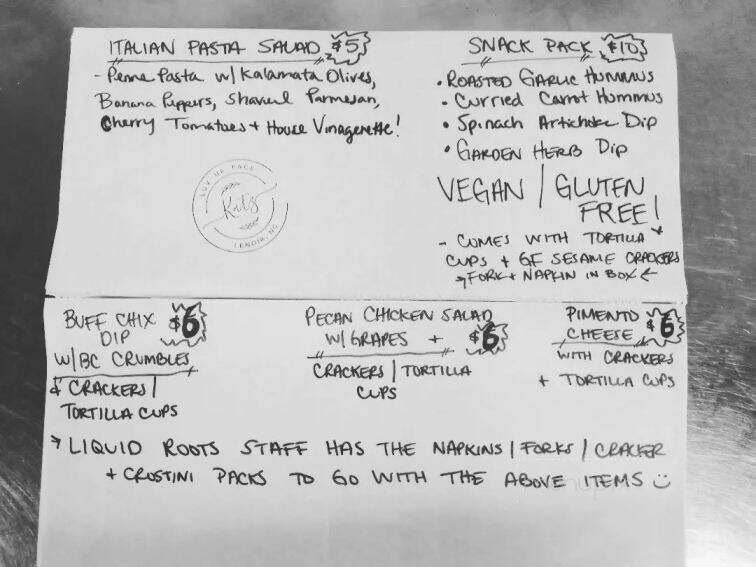 ITALIAN PASTA SALAD $5
- Penne Pasta w/ Kalamata Olives,
Banana Peppers, Shaved Parmesan,
Cherry Tomatoes + House Vinagerette!
Kat's
LENOIR, NC
SNACK PACK $10
• ROASTED GARLIC HUMMUS
• Curried Carrot Hummus
• Spinach Artichoke Dip
• GARDEN HERB DIP
VEGAN / GLUTEN
FREE!
- COMES WITH TORTILLA
CUPS + GF SESAME CRACKERS
→ FORK + NAPKIN IN BOX ←
BUFF CHIX $6
DIP
W/BC CRUMBLES
& CRACKERS /
TORTILLA CUPS
PECAN CHICKEN SALAD
W/ GRAPES + $6
CRACKERS / TORTILLA
CUPS
PIMENTO
CHEESE $6
WITH CRACKERS
+ TORTILLA CUPS
→ LIQUID ROOTS STAFF HAS THE NAPKINS / FORKS / CRACKER
+ CROSTINI PACKS TO GO WITH THE ABOVE ITEMS ☺